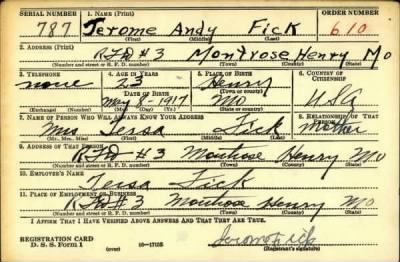 SERIAL NUMBER 1. NAME (Print) ORDER NUMBER
787 Jerome Andy Fick 610
(First) (Middle) (Last)
2. ADDRESS (Print)
RFD #3 Montrose Henry Mo
(Number and street or R. F. D. number) (Town) (County) (State)
3. TELEPHONE 4. AGE IN YEARS 5. PLACE OF BIRTH 6. COUNTRY OF CITIZENSHIP
none 23 Henry
DATE OF BIRTH (Town or county)
May 8-1917 Mo. USA
(Exchange) (Number) (Mo.) (Day) (Yr.) (State or country)
7. NAME OF PERSON WHO WILL ALWAYS KNOW YOUR ADDRESS 8. RELATIONSHIP OF THAT PERSON
Mrs Teresa Fick mother
(Mr., Mrs., Miss) (First) (Middle) (Last)
9. ADDRESS OF THAT PERSON
RFD #3 Montrose Henry Mo
(Number and street or R. F. D. number) (Town) (County) (State)
10. EMPLOYER'S NAME
Teresa Fick
11. PLACE OF EMPLOYMENT OR BUSINESS
RFD #3 Montrose Henry Mo
(Number and street or R. F. D. number) (Town) (County) (State)
I AFFIRM THAT I HAVE VERIFIED ABOVE ANSWERS AND THAT THEY ARE TRUE.
REGISTRATION CARD
D. S. S. Form 1 (over) 16-17105 Jerome Fick
(Registrant's signature)